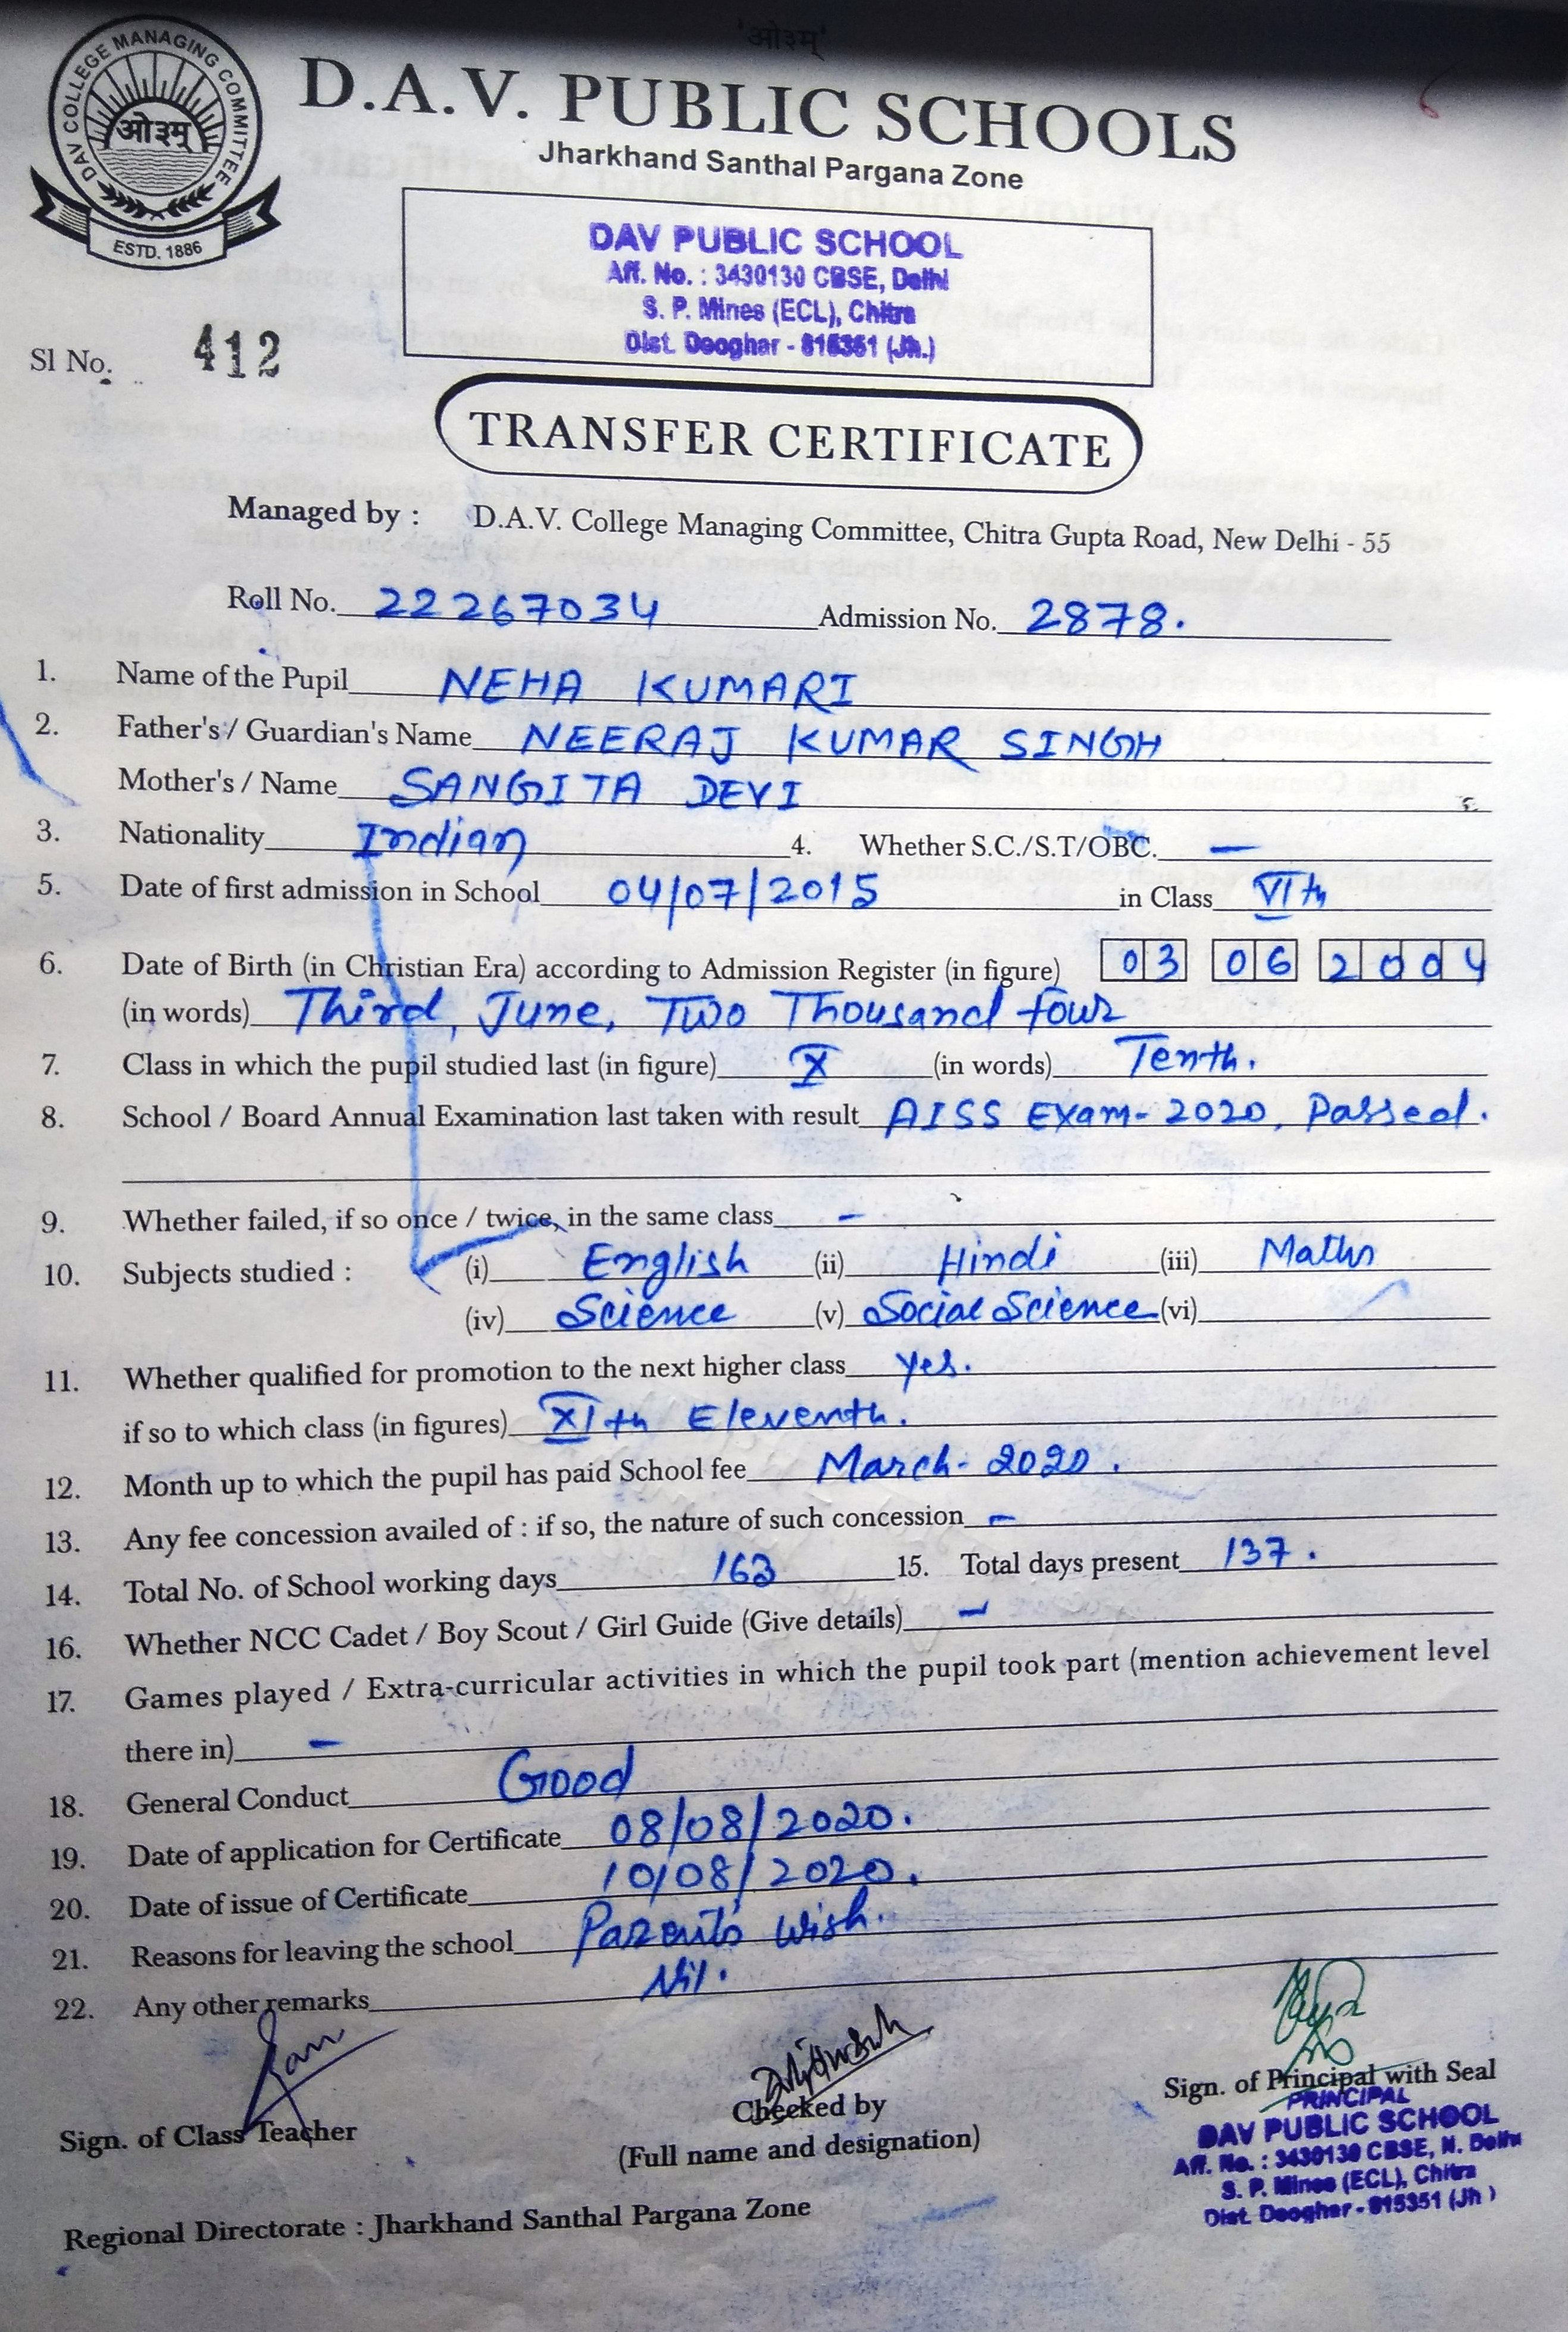 'ओ३म्'
DAV COLLEGE MANAGING COMMITTEE
ओ३म्
ESTD. 1886
D.A.V. PUBLIC SCHOOLS
Jharkhand Santhal Pargana Zone
DAV PUBLIC SCHOOL
Aff. No. : 3430130 CBSE, Delhi
S. P. Mines (ECL), Chitra
Dist. Deoghar - 815351 (Jh.)
Sl No. 412
TRANSFER CERTIFICATE
Managed by : D.A.V. College Managing Committee, Chitra Gupta Road, New Delhi - 55
Roll No. 22267034 Admission No. 2878.
1. Name of the Pupil NEHA KUMARI
2. Father's / Guardian's Name NEERAJ KUMAR SINGH
Mother's / Name SANGITA DEVI
3. Nationality Indian 4. Whether S.C./S.T/OBC. —
5. Date of first admission in School 04/07/2015 in Class VIth
6. Date of Birth (in Christian Era) according to Admission Register (in figure) 03 06 2004
(in words) Third, June, Two Thousand four
7. Class in which the pupil studied last (in figure) X (in words) Tenth.
8. School / Board Annual Examination last taken with result AISS Exam- 2020, Passed.
9. Whether failed, if so once / twice, in the same class —
10. Subjects studied : (i) English (ii) Hindi (iii) Maths
(iv) Science (v) Social Science (vi)
11. Whether qualified for promotion to the next higher class yes.
if so to which class (in figures) XIth Eleventh.
12. Month up to which the pupil has paid School fee March- 2020.
13. Any fee concession availed of : if so, the nature of such concession —
14. Total No. of School working days 163 15. Total days present 137.
16. Whether NCC Cadet / Boy Scout / Girl Guide (Give details) —
17. Games played / Extra-curricular activities in which the pupil took part (mention achievement level
there in) —
18. General Conduct Good
19. Date of application for Certificate 08/08/2020.
20. Date of issue of Certificate 10/08/2020.
21. Reasons for leaving the school Parent's Wish.
22. Any other remarks Nil.
Sign. of Class Teacher
Checked by
(Full name and designation)
Sign. of Principal with Seal
PRINCIPAL
DAV PUBLIC SCHOOL
Aff. No. : 3430130 CBSE, N. Delhi
S. P. Mines (ECL), Chitra
Dist. Deoghar - 815351 (Jh )
Regional Directorate : Jharkhand Santhal Pargana Zone